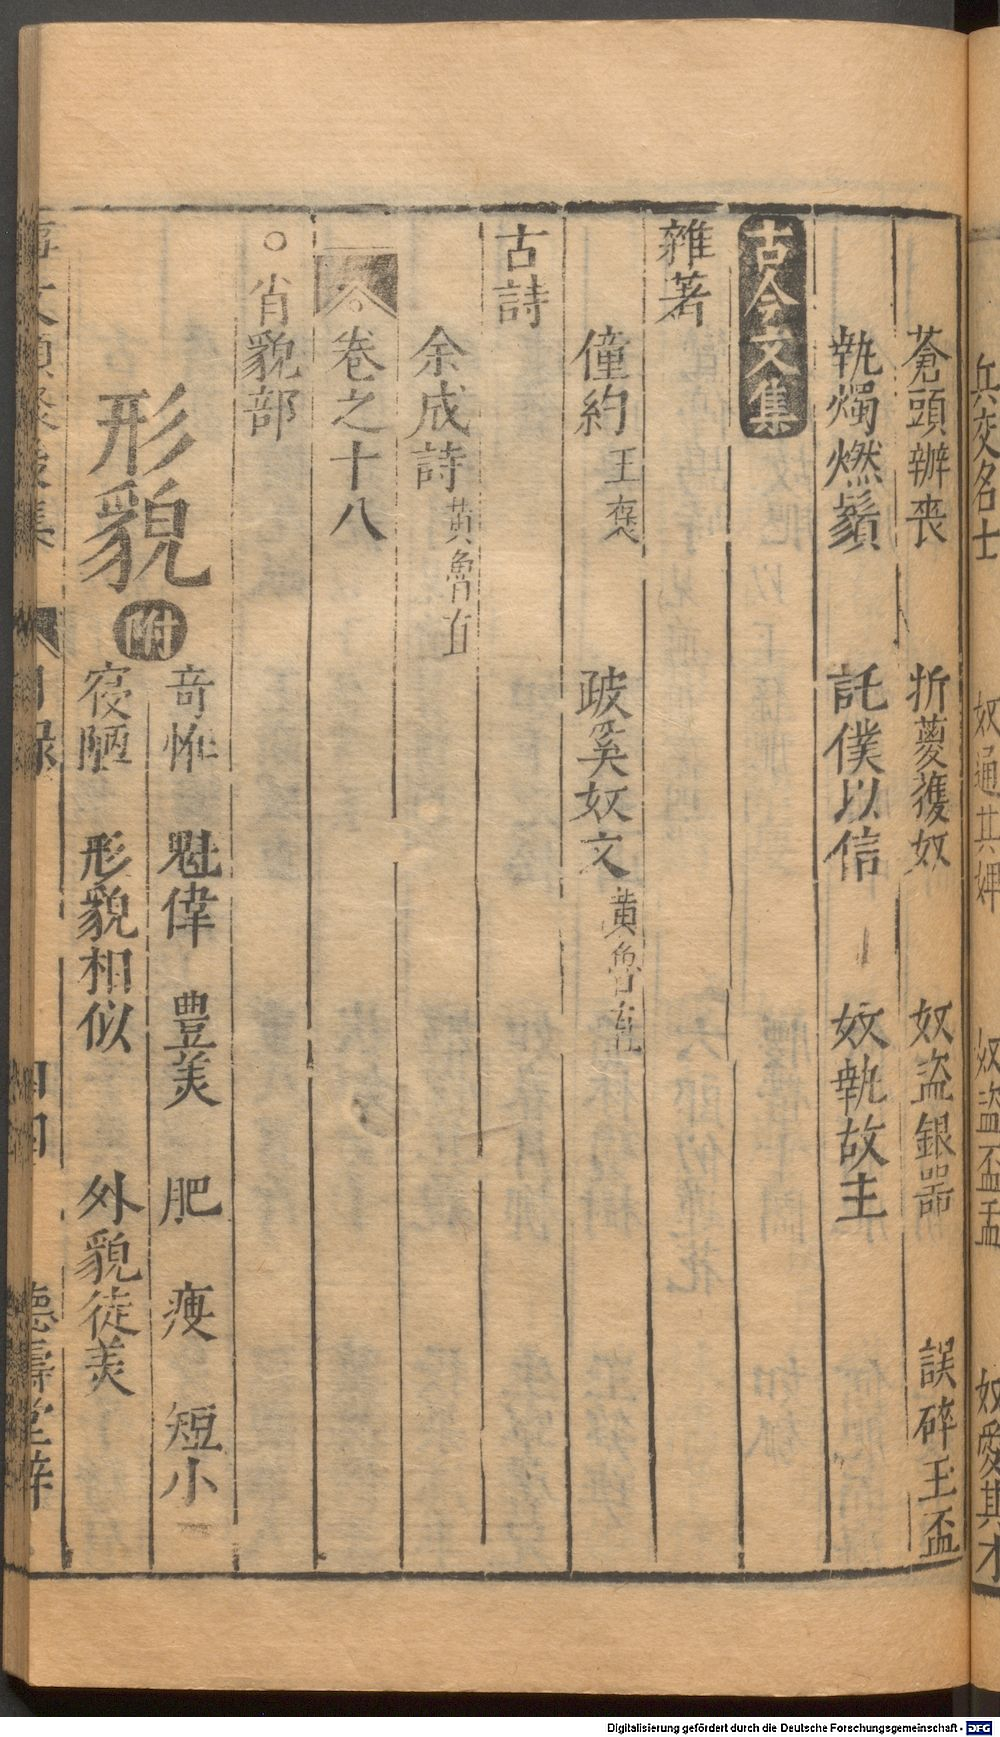 兵交名士　奴通其婢　奴盜盃盂　奴愛其才
蒼頭辦喪　折蔓獲奴　奴盜銀器　誤碎玉盃
執燭燃鬚　託僕以信　奴執故主
古今文集
雜著
僮約　王褒　跛奚奴文　黃魯直
古詩
余成詩　黃魯直
卷之十八
○肖貌部
形貌　附　竒恠　魁偉　豊美　肥　瘦　短小
寝陋　形貌相似　外貌徒美
事文類聚後集　目録　四四　德壽堂梓
Digitalisierung gefördert durch die Deutsche Forschungsgemeinschaft - DFG